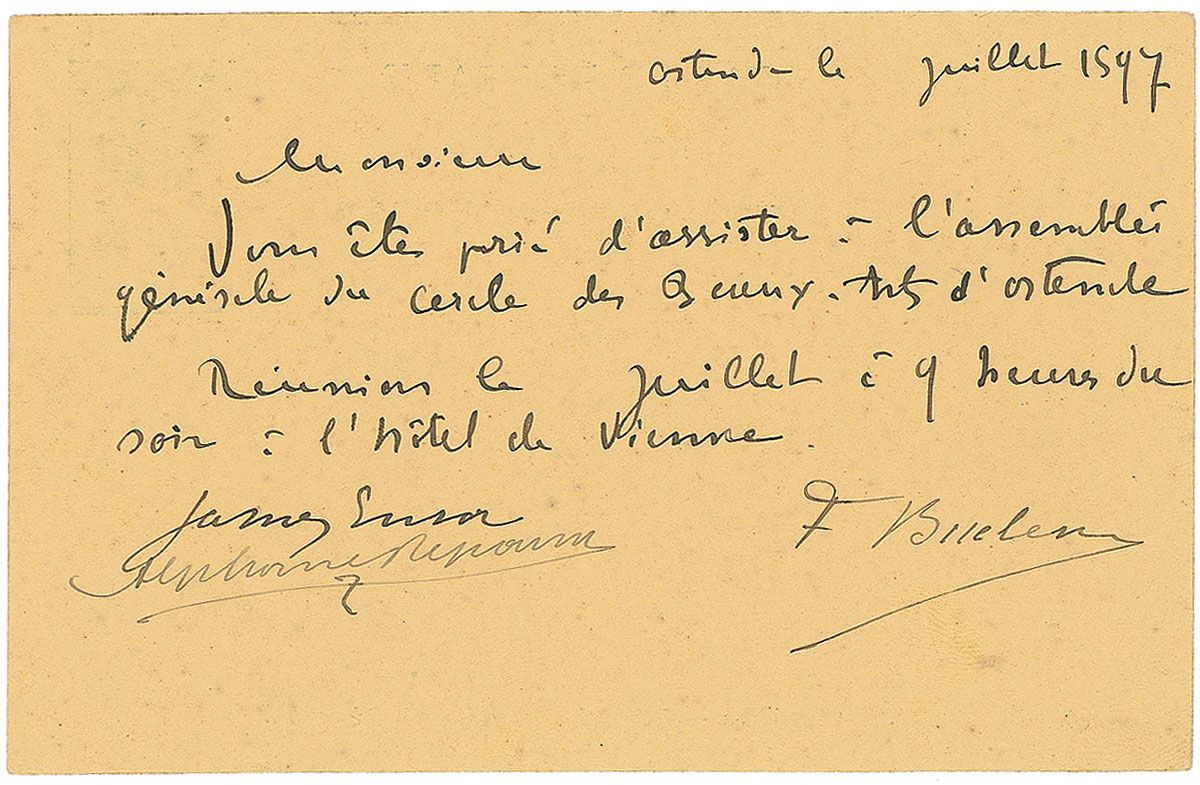 Ostende le juillet 1897
Monsieur
Vous êtes prié d'assister à l'assemblée
générale du cercle des Beaux-Arts d'Ostende
Réunion le juillet à 9 heures du
soir à l'hôtel de Vienne.
James Ensor
F Buelens
Alphonse